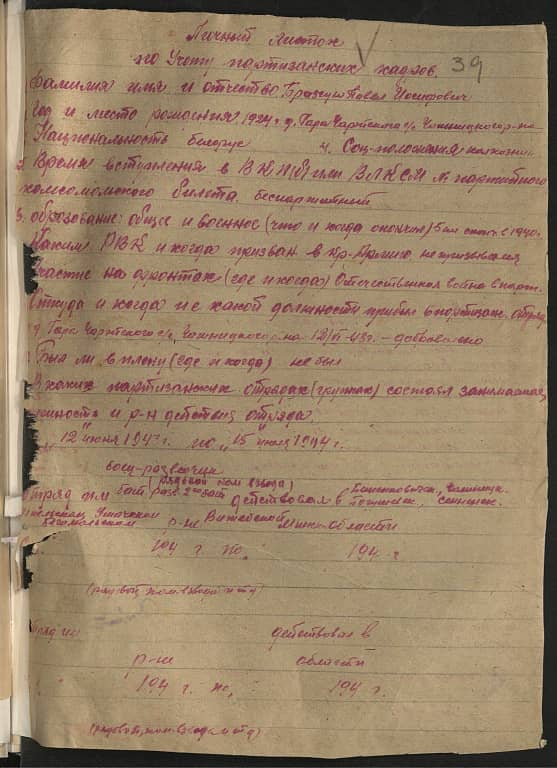 Личный листок
по Учету партизанских кадров. 39
Фамилия имя и отчество. Павел Иосифович
Год и место рождения 1924г. д. Гора
Национальность белорус 4. Соц-положения колхозник
Время вступления в ВКП(б) или ВЛКСМ № партийного
комсомольского билета. беспартийный
5. Образование: общее и военное (что и когда окончил) 5 в 1940г.
Каким РВК и когда призван в кр-Армию не призывался
Участие на фронтах (где и когда) Отечественная война в парт.
Откуда и когда и с какой должности прибыл в партизан. отряд
д. Гора р-на 12/VI-43г. - добровольно
Был ли в плену (где и когда) не был
В каких партизанских отрядах (группах) состоял занимаемая
должность и р-н действия отряда.
"12" июня 1943 г. по "15" 1944 г.
боец-разведчик
(рядовой ком взвода)
Отряд действовал в
р-не Витебской области
194 г. по, 194 г.
(рядовой, ком-взвода и тд)
действовал в
р-не области
194 г. по, 194 г.
(рядовой, ком-взвода и тд)